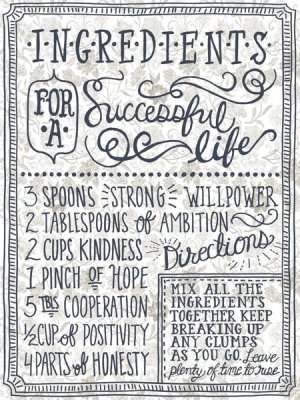 INGREDIENTS
FOR
A
Successful
life
3 SPOONS STRONG WILLPOWER
2 TABLESPOONS of AMBITION
2 CUPS KINDNESS
1 PINCH OF HOPE
5 TBLS COOPERATION
1/2 CUP of POSITIVITY
4 PARTS of HONESTY
Directions
MIX ALL THE
INGREDIENTS
TOGETHER KEEP
BREAKING UP
ANY CLUMPS
AS YOU GO. Leave
plenty of time to rise